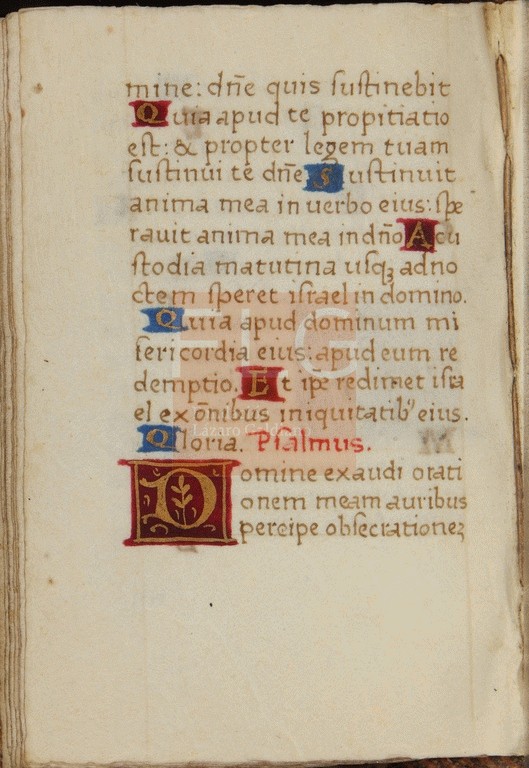 mine: dn̄e quis sustinebit
Quia apud te propitiatio
est: & propter legem tuam
sustinui te dn̄e Sustinuit
anima mea in uerbo eius: spe
rauit anima mea in dn̄o A cu
stodia matutina usqꝫ ad no
ctem speret israel in domino.
Quia apud dominum mi
sericordia eius: apud eum re
demptio. Et ip̄e redimet isra
el ex o̅nibus iniquitatibꝰ eius.
Gloria. Psalmus.
Domine exaudi orati
onem meam auribus
percipe obsecrationeꝫ
FLG
Lázaro Galdiano